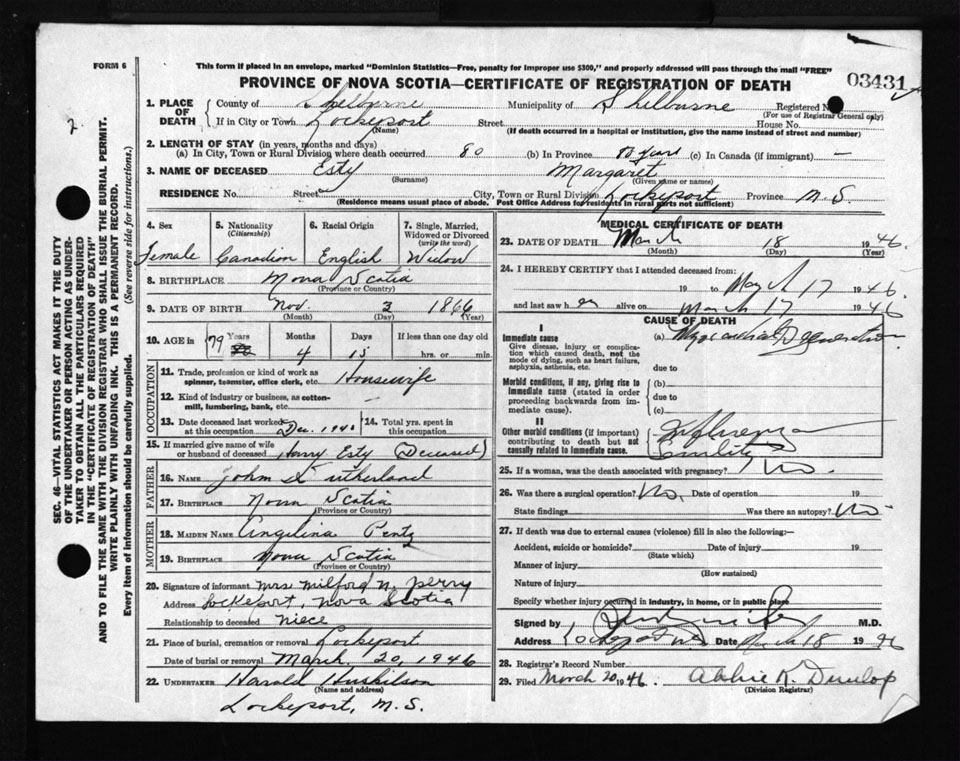 FORM 6
This form if placed in an envelope, marked "Dominion Statistics—Free, penalty for improper use $300," and properly addressed will pass through the mail "FREE"
PROVINCE OF NOVA SCOTIA—CERTIFICATE OF REGISTRATION OF DEATH
03431
2.
SEC. 46—VITAL STATISTICS ACT MAKES IT THE DUTY
OF THE UNDERTAKER OR PERSON ACTING AS UNDER-
TAKER TO OBTAIN ALL THE PARTICULARS REQUIRED
IN THE "CERTIFICATE OF REGISTRATION OF DEATH"
AND TO FILE THE SAME WITH THE DIVISION REGISTRAR WHO SHALL ISSUE THE BURIAL PERMIT.
WRITE PLAINLY WITH UNFADING INK. THIS IS A PERMANENT RECORD.
Every item of information should be carefully supplied. (See reverse side for instructions.)
1. PLACE OF DEATH { County of Shelburne Municipality of Shelburne Registered No.
(For use of Registrar General only)
If in City or Town Lockeport Street House No.
(Name) (If death occurred in a hospital or institution, give the name instead of street and number)
2. LENGTH OF STAY (in years, months and days)
(a) In City, Town or Rural Division where death occurred 80 (b) In Province 80 years (c) In Canada (if immigrant) —
3. NAME OF DECEASED Esty Margaret
(Surname) (Given name or names)
RESIDENCE No. Street City, Town or Rural Division Lockeport Province N.S.
(Residence means usual place of abode. Post Office Address for residents in rural parts not sufficient)
4. Sex 5. Nationality (Citizenship) 6. Racial Origin 7. Single, Married, Widowed or Divorced (write the word)
Female Canadian English Widow
8. BIRTHPLACE Nova Scotia
(Province or Country)
9. DATE OF BIRTH Nov 3 1866
(Month) (Day) (Year)
10. AGE in Years Months Days If less than one day old
79 4 15 hrs. or min.
OCCUPATION
11. Trade, profession or kind of work as Housewife
spinner, teamster, office clerk, etc.
12. Kind of industry or business, as cotton-
mill, lumbering, bank, etc.
13. Date deceased last worked at this occupation Dec. 1940 14. Total yrs. spent in this occupation
15. If married give name of wife or husband of deceased Harry Esty (Deceased)
FATHER
16. NAME John Sutherland
17. BIRTHPLACE Nova Scotia
(Province or Country)
MOTHER
18. MAIDEN NAME Angelina Pentz
19. BIRTHPLACE Nova Scotia
(Province or Country)
20. Signature of informant Mrs Milford N. Perry
Address Lockeport, Nova Scotia
Relationship to deceased niece
21. Place of burial, cremation or removal Lockeport
Date of burial or removal March 20, 1946
22. UNDERTAKER Harold Huskilson
(Name and address)
Lockeport, N.S.
MEDICAL CERTIFICATE OF DEATH
23. DATE OF DEATH March 18 1946
(Month) (Day) (Year)
24. I HEREBY CERTIFY that I attended deceased from:
19 to March 17 1946
and last saw her alive on March 17 1946
CAUSE OF DEATH
I
Immediate cause (a) Myocardial Degeneration
Give disease, injury or complica-
tion which caused death, not the
mode of dying, such as heart failure,
asphyxia, asthenia, etc.
due to
Morbid conditions, if any, giving rise to
immediate cause (stated in order
proceeding backwards from im-
mediate cause).
(b)
due to
(c)
II
Other morbid conditions (if important)
contributing to death but not
causally related to immediate cause.
Influenza
Senility
25. If a woman, was the death associated with pregnancy? No.
26. Was there a surgical operation? No. Date of operation 19
State findings Was there an autopsy? No
27. If death was due to external causes (violence) fill in also the following:—
Accident, suicide or homicide? Date of injury 19
(State which)
Manner of injury
(How sustained)
Nature of injury
Specify whether injury occurred in industry, in home, or in public place
Signed by M.D.
Address Lockeport N.S. Date March 18 1946
28. Registrar's Record Number
29. Filed March 20 1946. Abbie K. Dunlop
(Division Registrar)